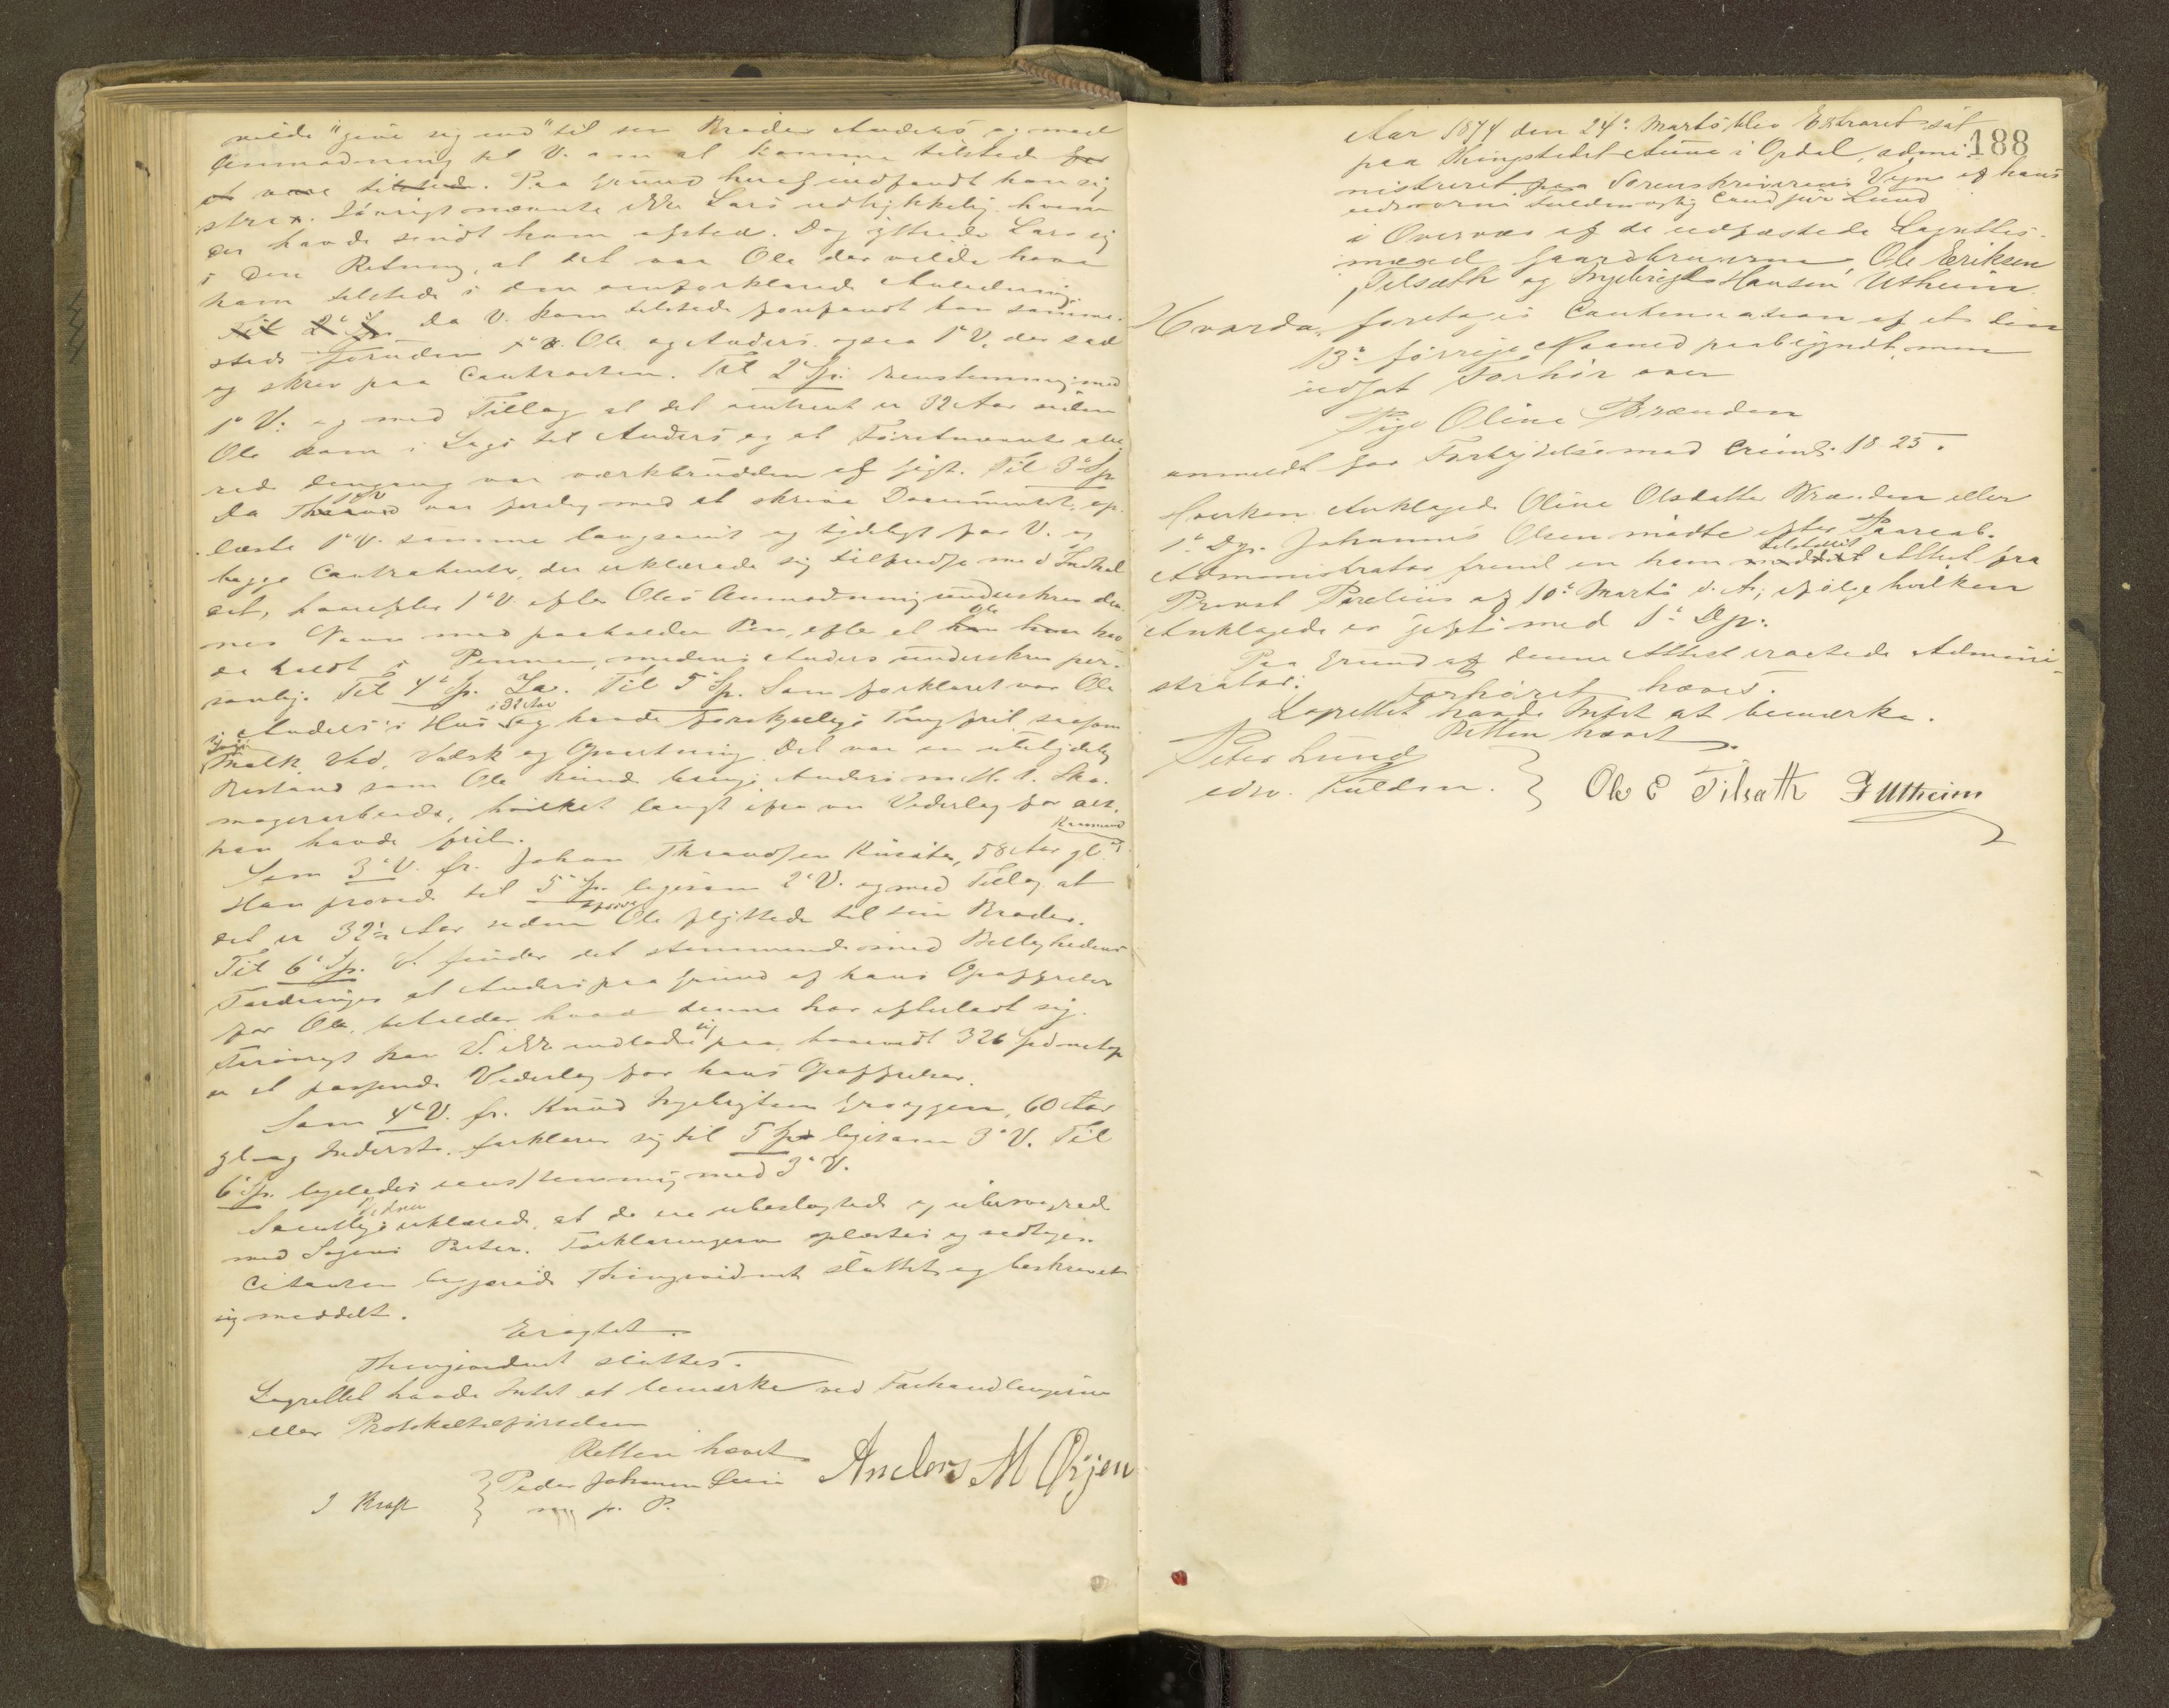 vilde "give sig ind" til sin Broder Anders og med
Anmodning til V. om at komme tilstede for
at være tilstede. Paa Grund heraf indfandt han sig
strax. Iøvrigt nævnte ikke Lars udtrykkelig hvem
der havde sendt ham afsted. Dog yttrede Lars sig
i den Retning, at det var Ole der vilde have
ham tilstede i den omforklarede Anledning.
Til 2' Sp. da V. kom tilstede forefandt han samme-
steds foruden Ole og Anders ogsaa 1' V. der sad
og skrev paa Contracten. Til 2' Sp. eenstemmig med
1' V. og med Tillæg at det omtrent er 32 Aar siden
Ole kom i Logi til Anders og at Førstnævnte alle-
rede dengang var værkbrudden af Gigt. Til 3' Sp.
da 1' V. var færdig med at skrive Documentet, op-
læste 1' V. samme langsomt og tydeligt for V. og
begge Contrahenter, der erklærede sig tilfredse med Indhol-
det, hvorefter 1' V. efter Oles Anmodning underskrev den-
nes Navn med paaholden Pen, efter at Ole hav-
de holdt i Pennen, medens Anders underskrev per-
sonlig. Til 4' Sp. Ja. Til 5' Sp. Som forklaret var Ole
i Anders's Hus i 32 Aar og havde forskjellige Ting frit saasom
Logi Melk, Ved, Vadsk og Opvartning. Det var en ubetydelig
Bistand som Ole kunde bringe Anders m. H. t. Sko-
magerarbeide, hvilket langt ifra var Vederlag for det,
han havde frit.
Som 3' V. fr. Johan Throndsen Risæter, 58 Aar gl. Kaarmand
Han provede til 5' Sp. ligesom 2' V. og med Tillæg at
det er 32½ Aar siden Ole flyttede til sin Broder.
Til 6' Sp. V. finder det stemmende med Billighedens
Fordringer at Anders paa Grund af hans Opofrelser
for Ole, beholder hvad denne har efterladt sig.
Iøvrigt kan V. ikke indlade sig paa, hvorvidt 326 Spd netop
er et passende Vederlag for hans Opoffrelser.
Som 4' V. fr. Knud Ingebrigtsen, 60 Aar
gl. og Inderst. forklarer sig til 5 Sp ligesom 3' V. Til
6' Sp. ligeledes eenstemmig med 3' V.
Samtlige Vidner erklærede, at de ere ubeslægtede og ubesvogrede
med Sagens Parter. Forklaringerne oplæstes og vedtoges.
Citanten begjærede Thingsvidnet sluttet og beskrevet
sig meddelt.
Eragtet.
Thingsvidnet sluttes.
Lagrettet havde Intet at bemærke ved Forhandlingerne
eller Protokoltilførselen
Retten hævet
J Kraft } Peder Johnsen Anders M Øijen
m. p. P.
188
Aar 1874 den 24' Marts blev Extraret sat
paa Thingstedet Aune i Opdal, admi-
nistreret paa Sorenskriverens Vegne af hans
edsvorne Fuldmægtig Cand jur Lund
i Overvær af de edfæstede Lagrettes-
mænd Gaardbrugerne Ole Eriksen
Tilsæth og Ingebrigt Hansen Utheim.
Hvorda foretoges Continuation af et den
13' førrige Maaned paabegyndt men
udsat Forhør over
Pige Oline Brænden
anmeldt for Forbrydelse mod Criml. 18-25.
Hverken Anklagede Oline Olsdatter Brænden eller
1' Dp. Johannes Olsen mødte efter Paaraab.
Administrator freml. en ham meddelt tilstillet Attest fra
Provst Parelius af 10' Marts d. A., ifølge hvilken
Anklagede er gift med 1' Dp.
Paa Grund af denne Attest eragtede Admini-
strator:
Forhøret hæves.
Lagrettet havde Intet at bemærke.
Retten hævet
Peter Lund
edsv. Fuldm. } Ole E Tilsæth I Utheim